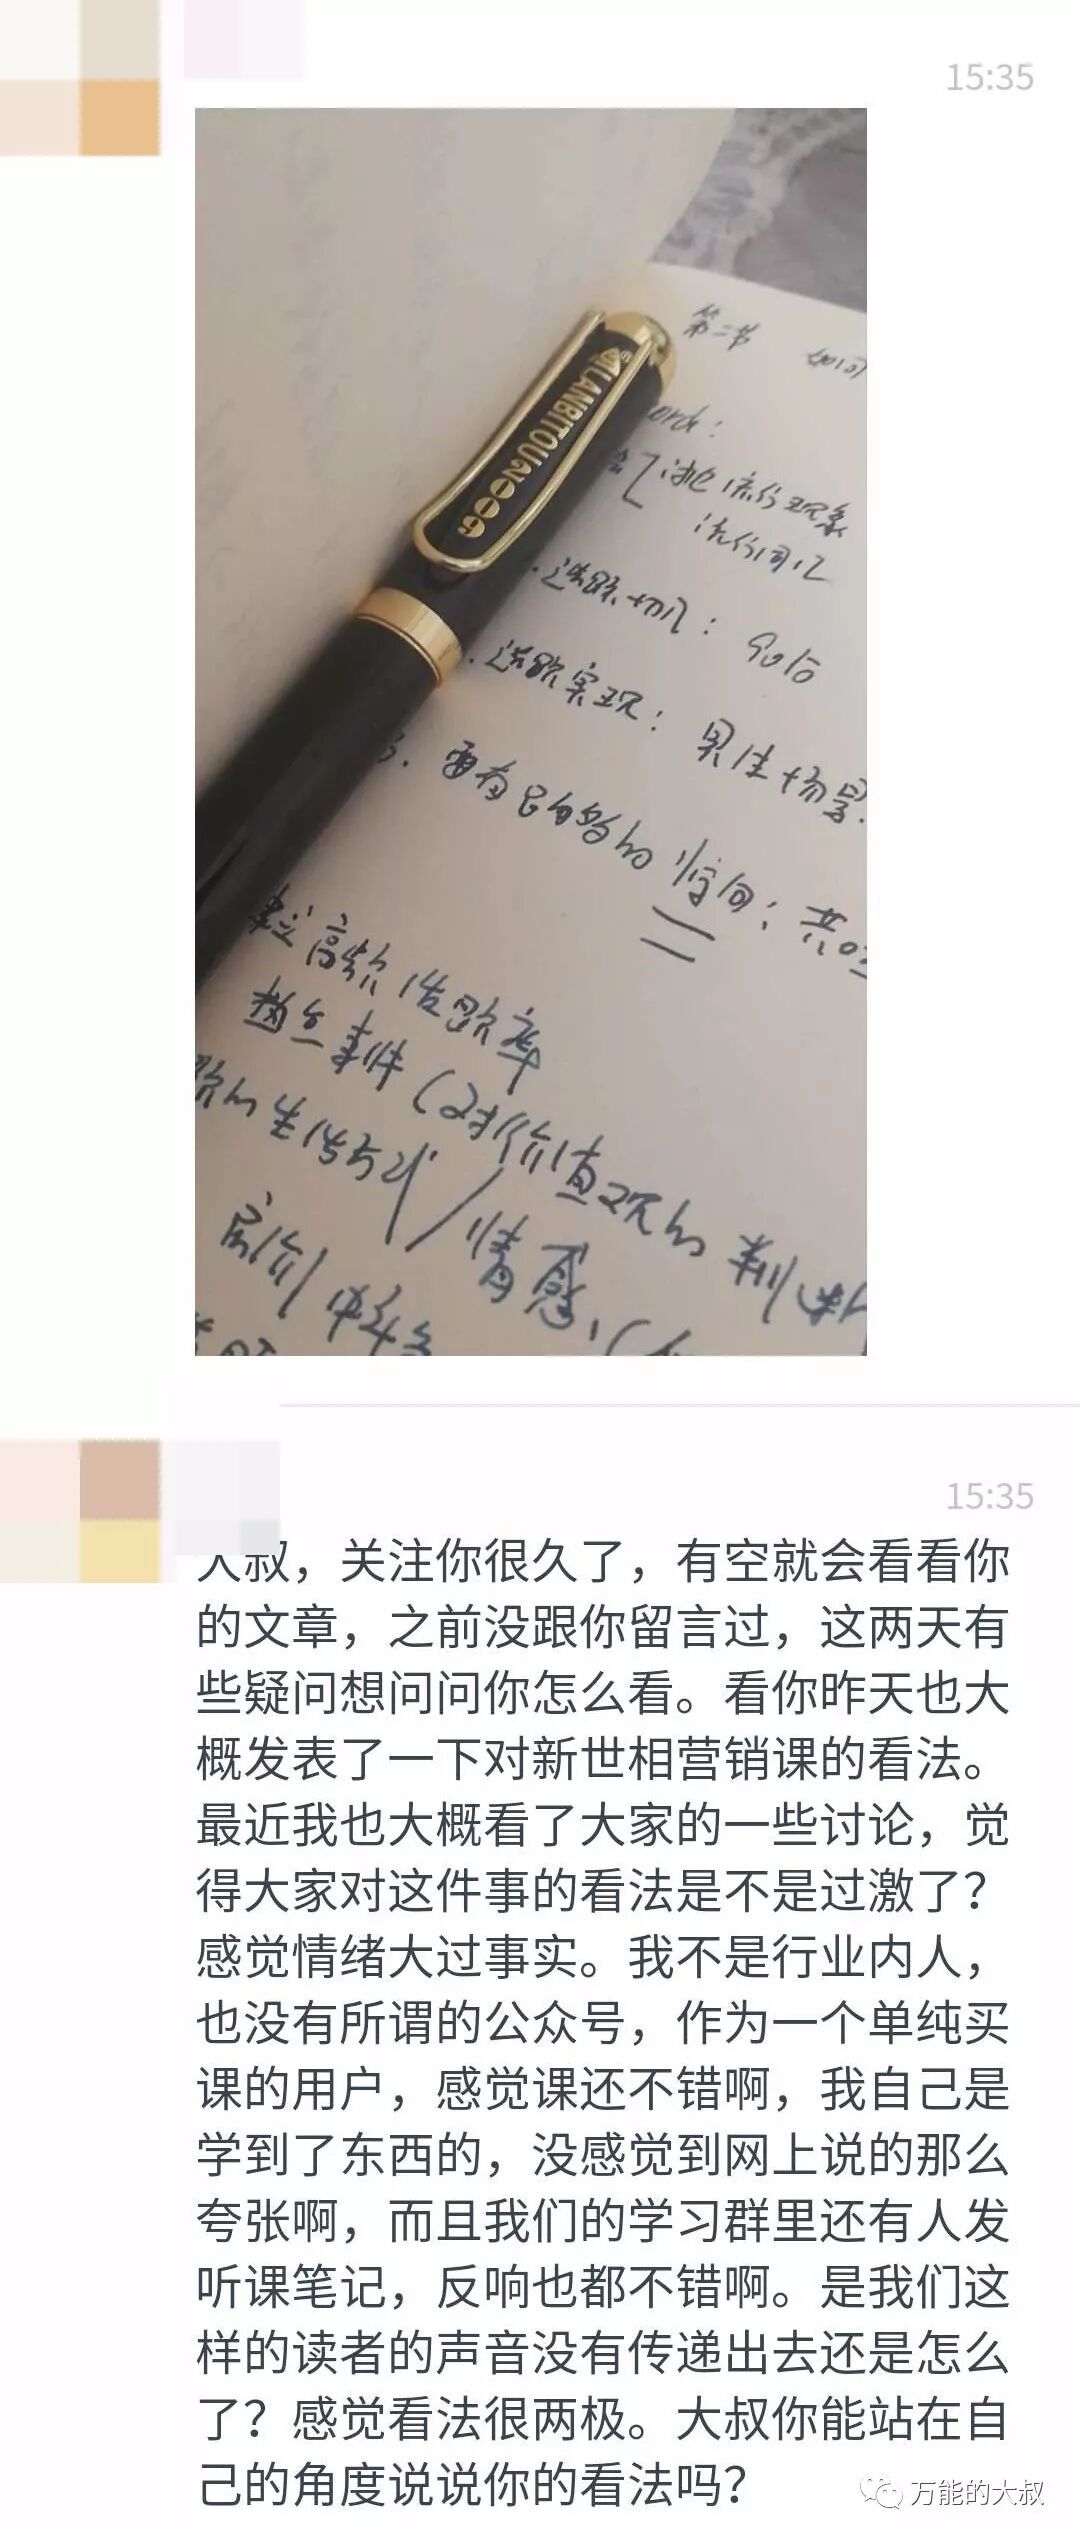 15:35
LANBITOU2006
第二节 如何
word:
流行现象
流行词汇
选题切入: 90后
选题实现: 男生场景
要有足够的 空间: 共
高频话题率
事件 (对价值观的判断
的生活方式 / 情感, (
房价
15:35
大叔，关注你很久了，有空就会看看你
的文章，之前没跟你留言过，这两天有
些疑问想问问你怎么看。看你昨天也大
概发表了一下对新世相营销课的看法。
最近我也大概看了大家的一些讨论，觉
得大家对这件事的看法是不是过激了？
感觉情绪大过事实。我不是行业内人，
也没有所谓的公众号，作为一个单纯买
课的用户，感觉课还不错啊，我自己是
学到了东西的，没感觉到网上说的那么
夸张啊，而且我们的学习群里还有人发
听课笔记，反响也都不错啊。是我们这
样的读者的声音没有传递出去还是怎么
了？感觉看法很两极。大叔你能站在自
己的角度说说你的看法吗？
万能的大叔